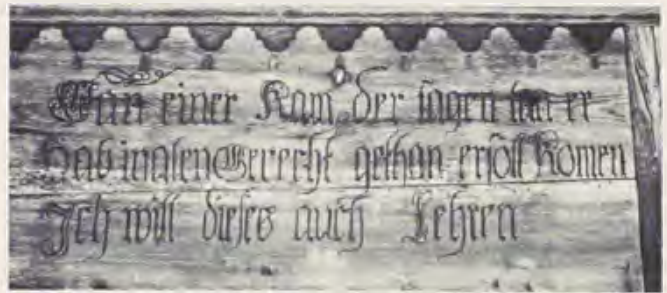 Wan einer Kam der sagen kan er
Hab in alen Gerecht gethan er soll Komen
Ich will dieses auch Lehren